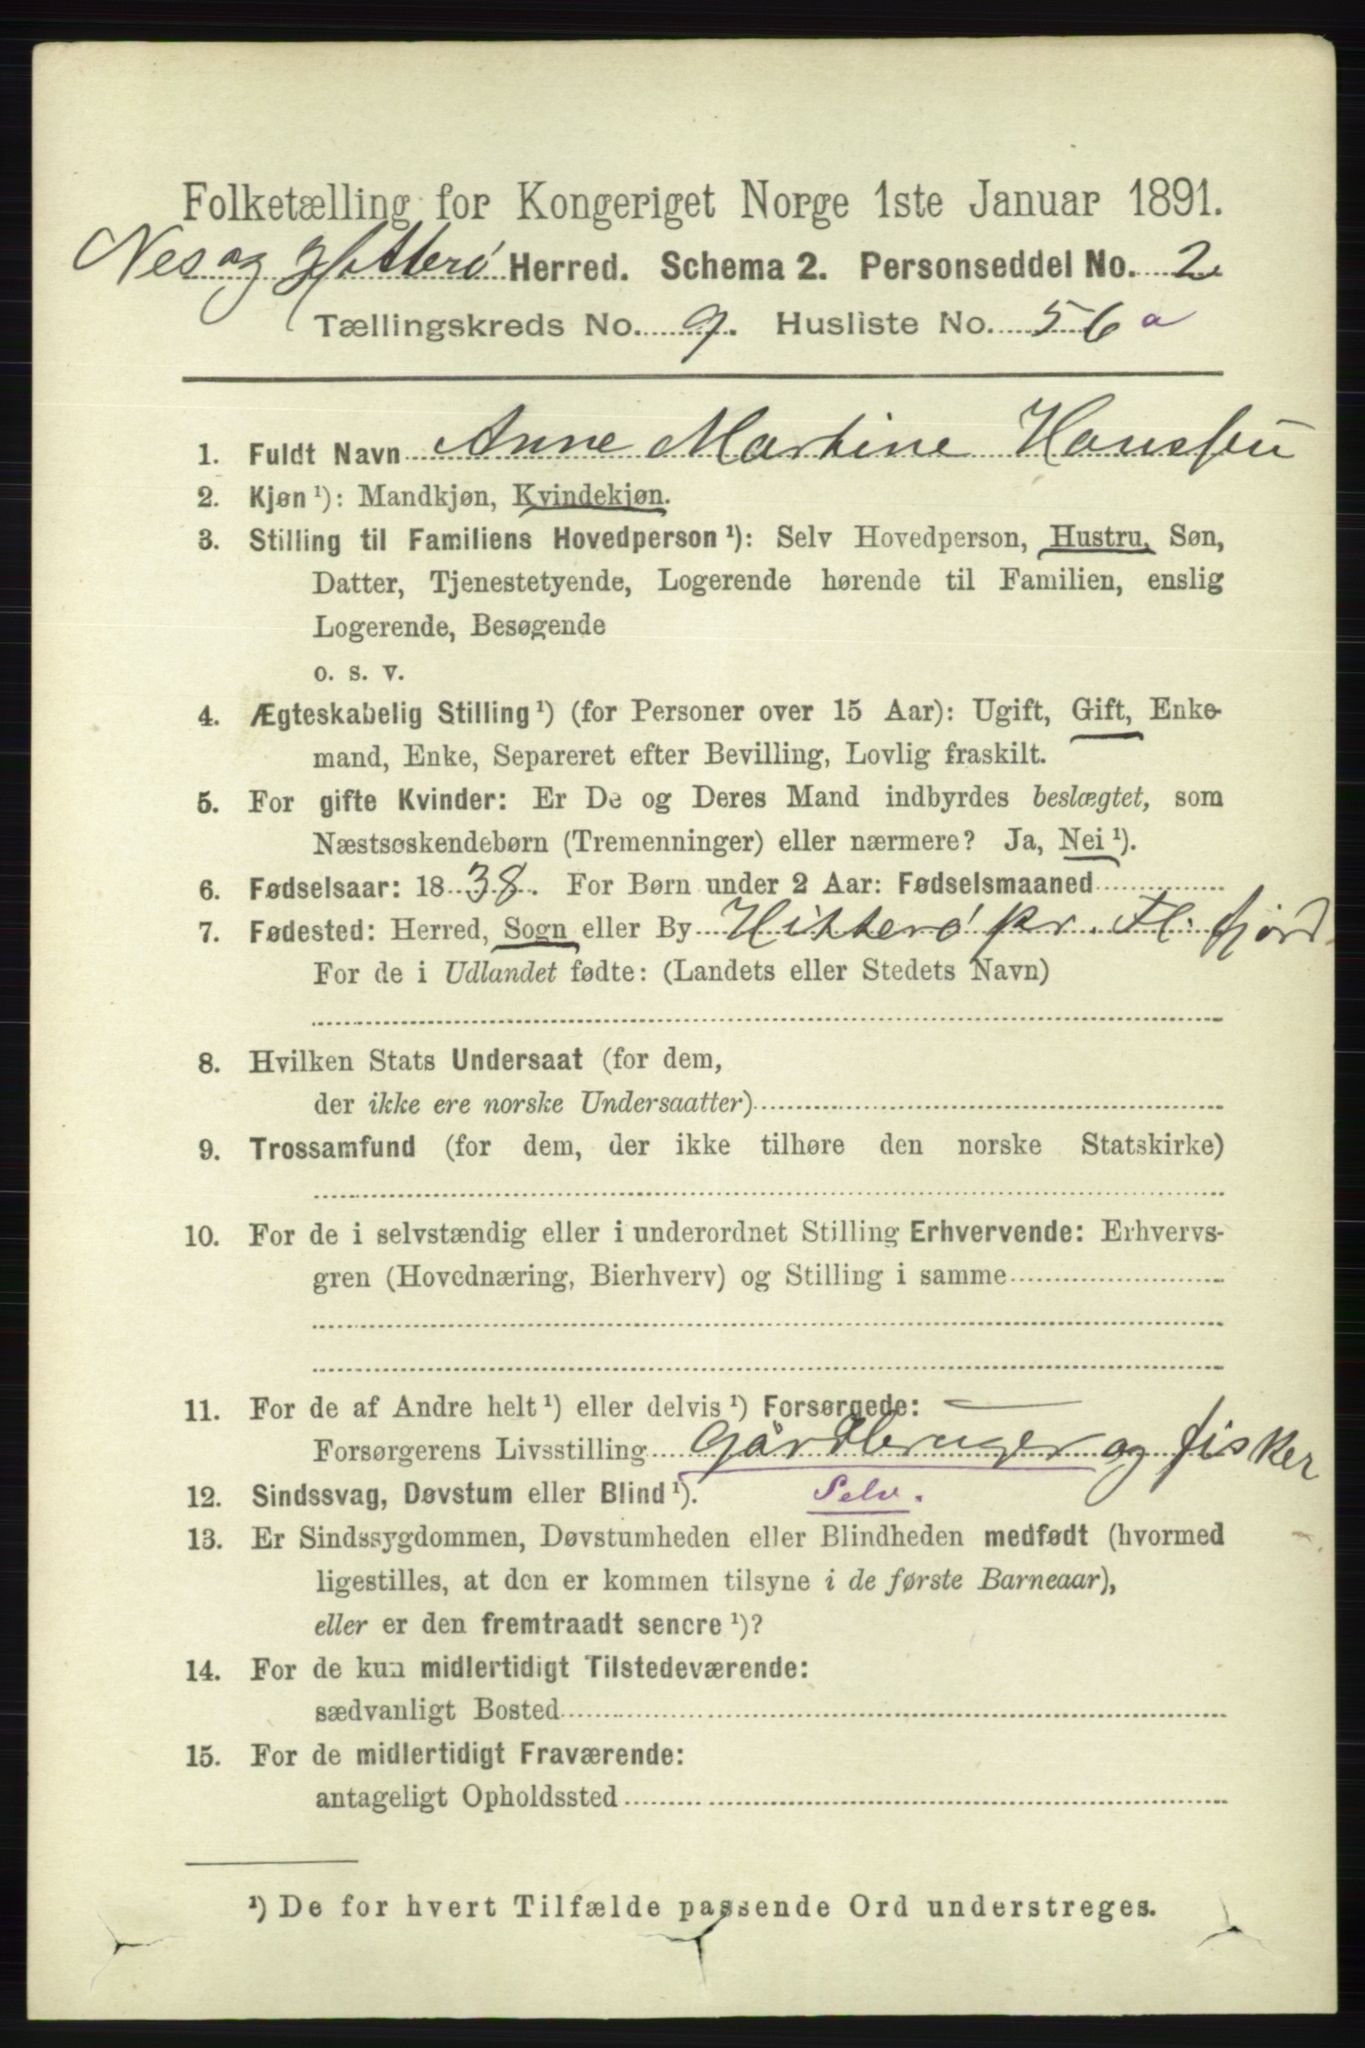 Folketælling for Kongeriget Norge 1ste Januar 1891.
Nes og Hitterø Herred. Schema 2. Personseddel No. 2
Tællingskreds No. 9. Husliste No. 56 a
1. Fuldt Navn Anne Martine Hansen
2. Kjøn ¹): Mandkjøn, Kvindekjøn.
3. Stilling til Familiens Hovedperson ¹): Selv Hovedperson, Hustru, Søn,
Datter, Tjenestetyende, Logerende hørende til Familien, enslig
Logerende, Besøgende
o. s. v.
4. Ægteskabelig Stilling ¹) (for Personer over 15 Aar): Ugift, Gift, Enke-
mand, Enke, Separeret efter Bevilling, Lovlig fraskilt.
5. For gifte Kvinder: Er De og Deres Mand indbyrdes beslægtet, som
Næstsøskendebørn (Tremenninger) eller nærmere? Ja, Nei ¹).
6. Fødselsaar: 1838. For Børn under 2 Aar: Fødselsmaaned
7. Fødested: Herred, Sogn eller By Hitterø pr. Fl. fjord
For de i Udlandet fødte: (Landets eller Stedets Navn)
8. Hvilken Stats Undersaat (for dem,
der ikke ere norske Undersaatter)
9. Trossamfund (for dem, der ikke tilhøre den norske Statskirke)
10. For de i selvstændig eller i underordnet Stilling Erhvervende: Erhvervs-
gren (Hovednæring, Bierhverv) og Stilling i samme
11. For de af Andre helt ¹) eller delvis ¹) Forsørgede:
Forsørgerens Livsstilling Gårdbruger og fisker
12. Sindssvag, Døvstum eller Blind ¹). Selv.
13. Er Sindssygdommen, Døvstumheden eller Blindheden medfødt (hvormed
ligestilles, at den er kommen tilsyne i de første Barneaar),
eller er den fremtraadt senere ¹)?
14. For de kun midlertidigt Tilstedeværende:
sædvanligt Bosted
15. For de midlertidigt Fraværende:
antageligt Opholdssted
¹) De for hvert Tilfælde passende Ord understreges.